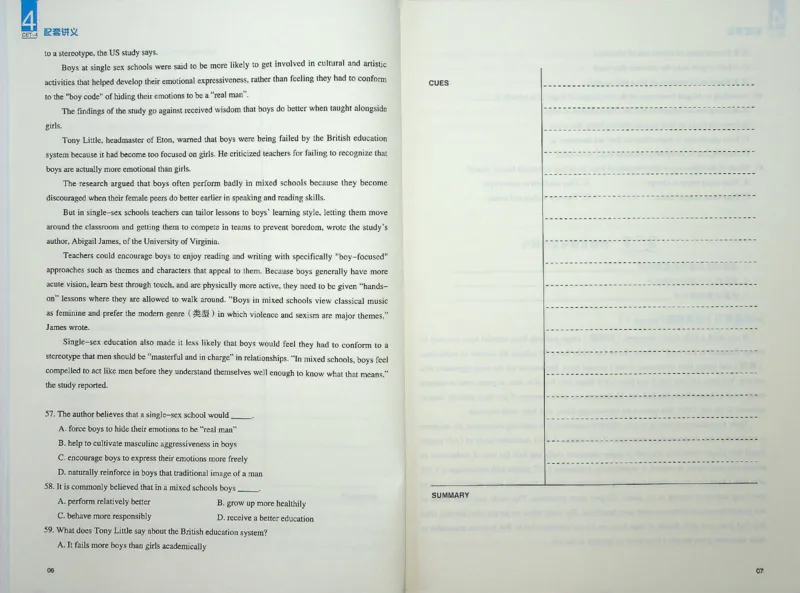 4
CET-4
配套讲义
to a stereotype, the US study says.
Boys at single sex schools were said to be more likely to get involved in cultural and artistic
activities that helped develop their emotional expressiveness, rather than feeling they had to conform
to the "boy code" of hiding their emotions to be a "real man".
The findings of the study go against received wisdom that boys do better when taught alongside
girls.
Tony Little, headmaster of Eton, warned that boys were being failed by the British education
system because it had become too focused on girls. He criticized teachers for failing to recognize that
boys are actually more emotional than girls.
The research argued that boys often perform badly in mixed schools because they become
discouraged when their female peers do better earlier in speaking and reading skills.
But in single-sex schools teachers can tailor lessons to boys' learning style, letting them move
around the classroom and getting them to compete in teams to prevent boredom, wrote the study's
author, Abigail James, of the University of Virginia.
Teachers could encourage boys to enjoy reading and writing with specifically "boy-focused"
approaches such as themes and characters that appeal to them. Because boys generally have more
acute vision, learn best through touch, and are physically more active, they need to be given "hands-
on" lessons where they are allowed to walk around. "Boys in mixed schools view classical music
as feminine and prefer the modern genre (类型) in which violence and sexism are major themes,"
James wrote.
Single-sex education also made it less likely that boys would feel they had to conform to a
stereotype that men should be "masterful and in charge" in relationships. "In mixed schools, boys feel
compelled to act like men before they understand themselves well enough to know what that means,"
the study reported.
57. The author believes that a single-sex school would _____.
A. force boys to hide their emotions to be "real man"
B. help to cultivate masculine aggressiveness in boys
C. encourage boys to express their emotions more freely
D. naturally reinforce in boys that traditional image of a man
58. It is commonly believed that in a mixed schools boys _____.
A. perform relatively better B. grow up more healthily
C. behave more responsibly D. receive a better education
59. What does Tony Little say about the British education system?
A. It fails more boys than girls academically
06
CUES
SUMMARY
07